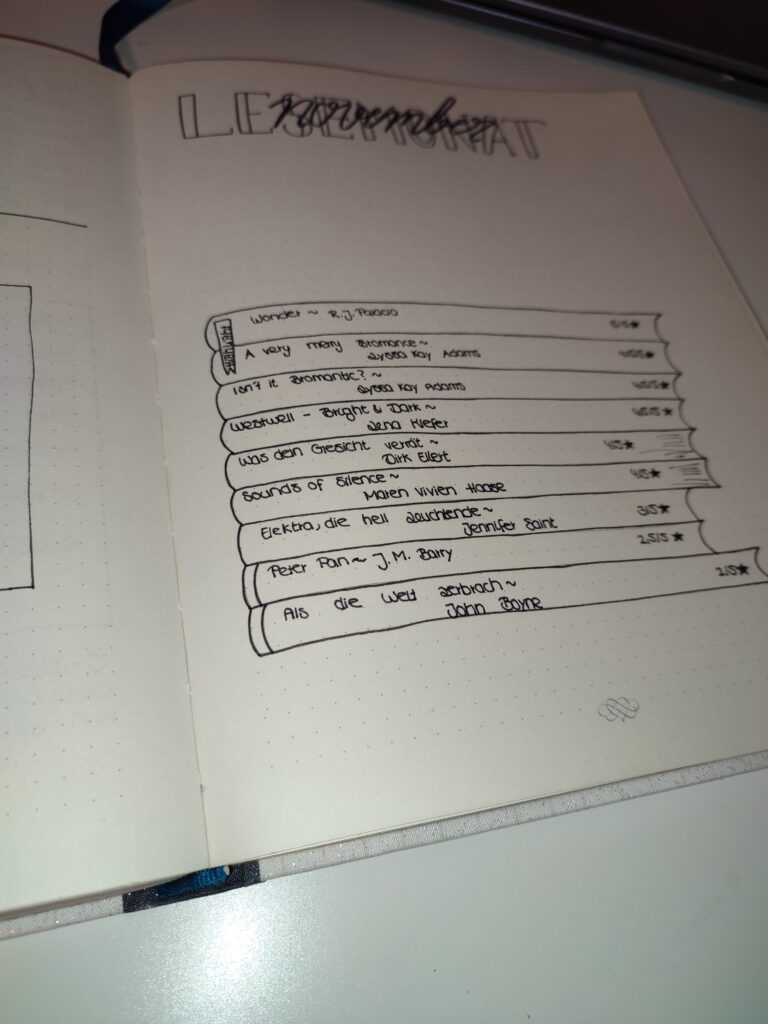 LESEMONAT
november
Wonder ~ R.J. Palacio 5/5★
HIGHLIGHT
A very merry Bromance ~ 4,5/5★
Lyssa Kay Adams
Isn't it Bromantic? ~ 4,5/5★
Lyssa Kay Adams
Westwell - Bright & Dark ~ 4,5/5★
Lena Kiefer
Was dein Gesicht verrät ~ 4/5★
Dirk Eilert
Sounds of Silence ~ 4/5★
Maren Vivien Haase
Elektra, die hell Leuchtende ~ 3/5★
Jennifer Saint
Peter Pan ~ J.M. Barry 2,5/5★
Als die Welt zerbrach ~ 2/5★
John Boyne